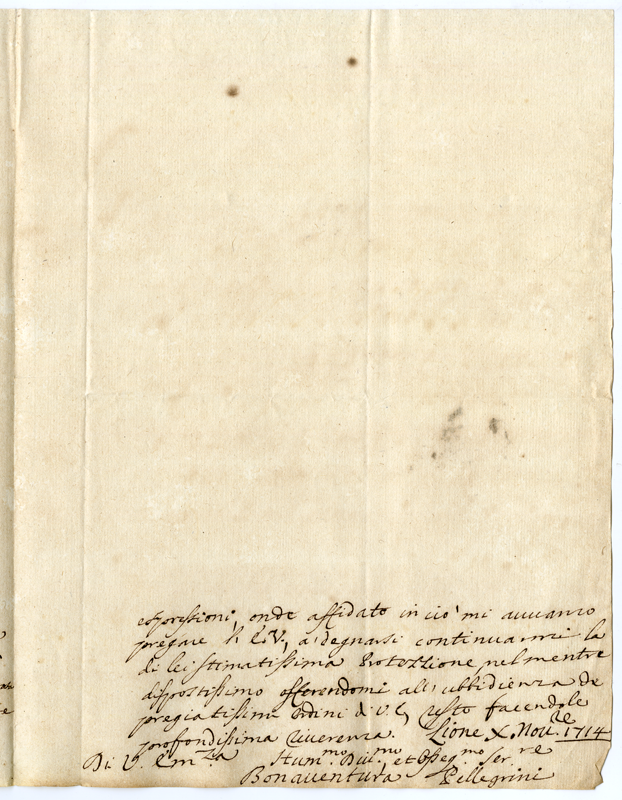 espressioni, onde affidato in ciò mi auuanzo
pregare l'E.V., a degnarsi continuarmi la
di lei stimatissima Protezzione nel mentre
dispostissimo offerendomi all'ubbidienza de
pregiatissimi ordini di V.E, resto facendole
profondissima riuerenza. Lione X. Nou.re 1714
Di V. Em.za Hum.mo Diu.mo, et Obseq.mo Ser.re
Bonauentura Pellegrini